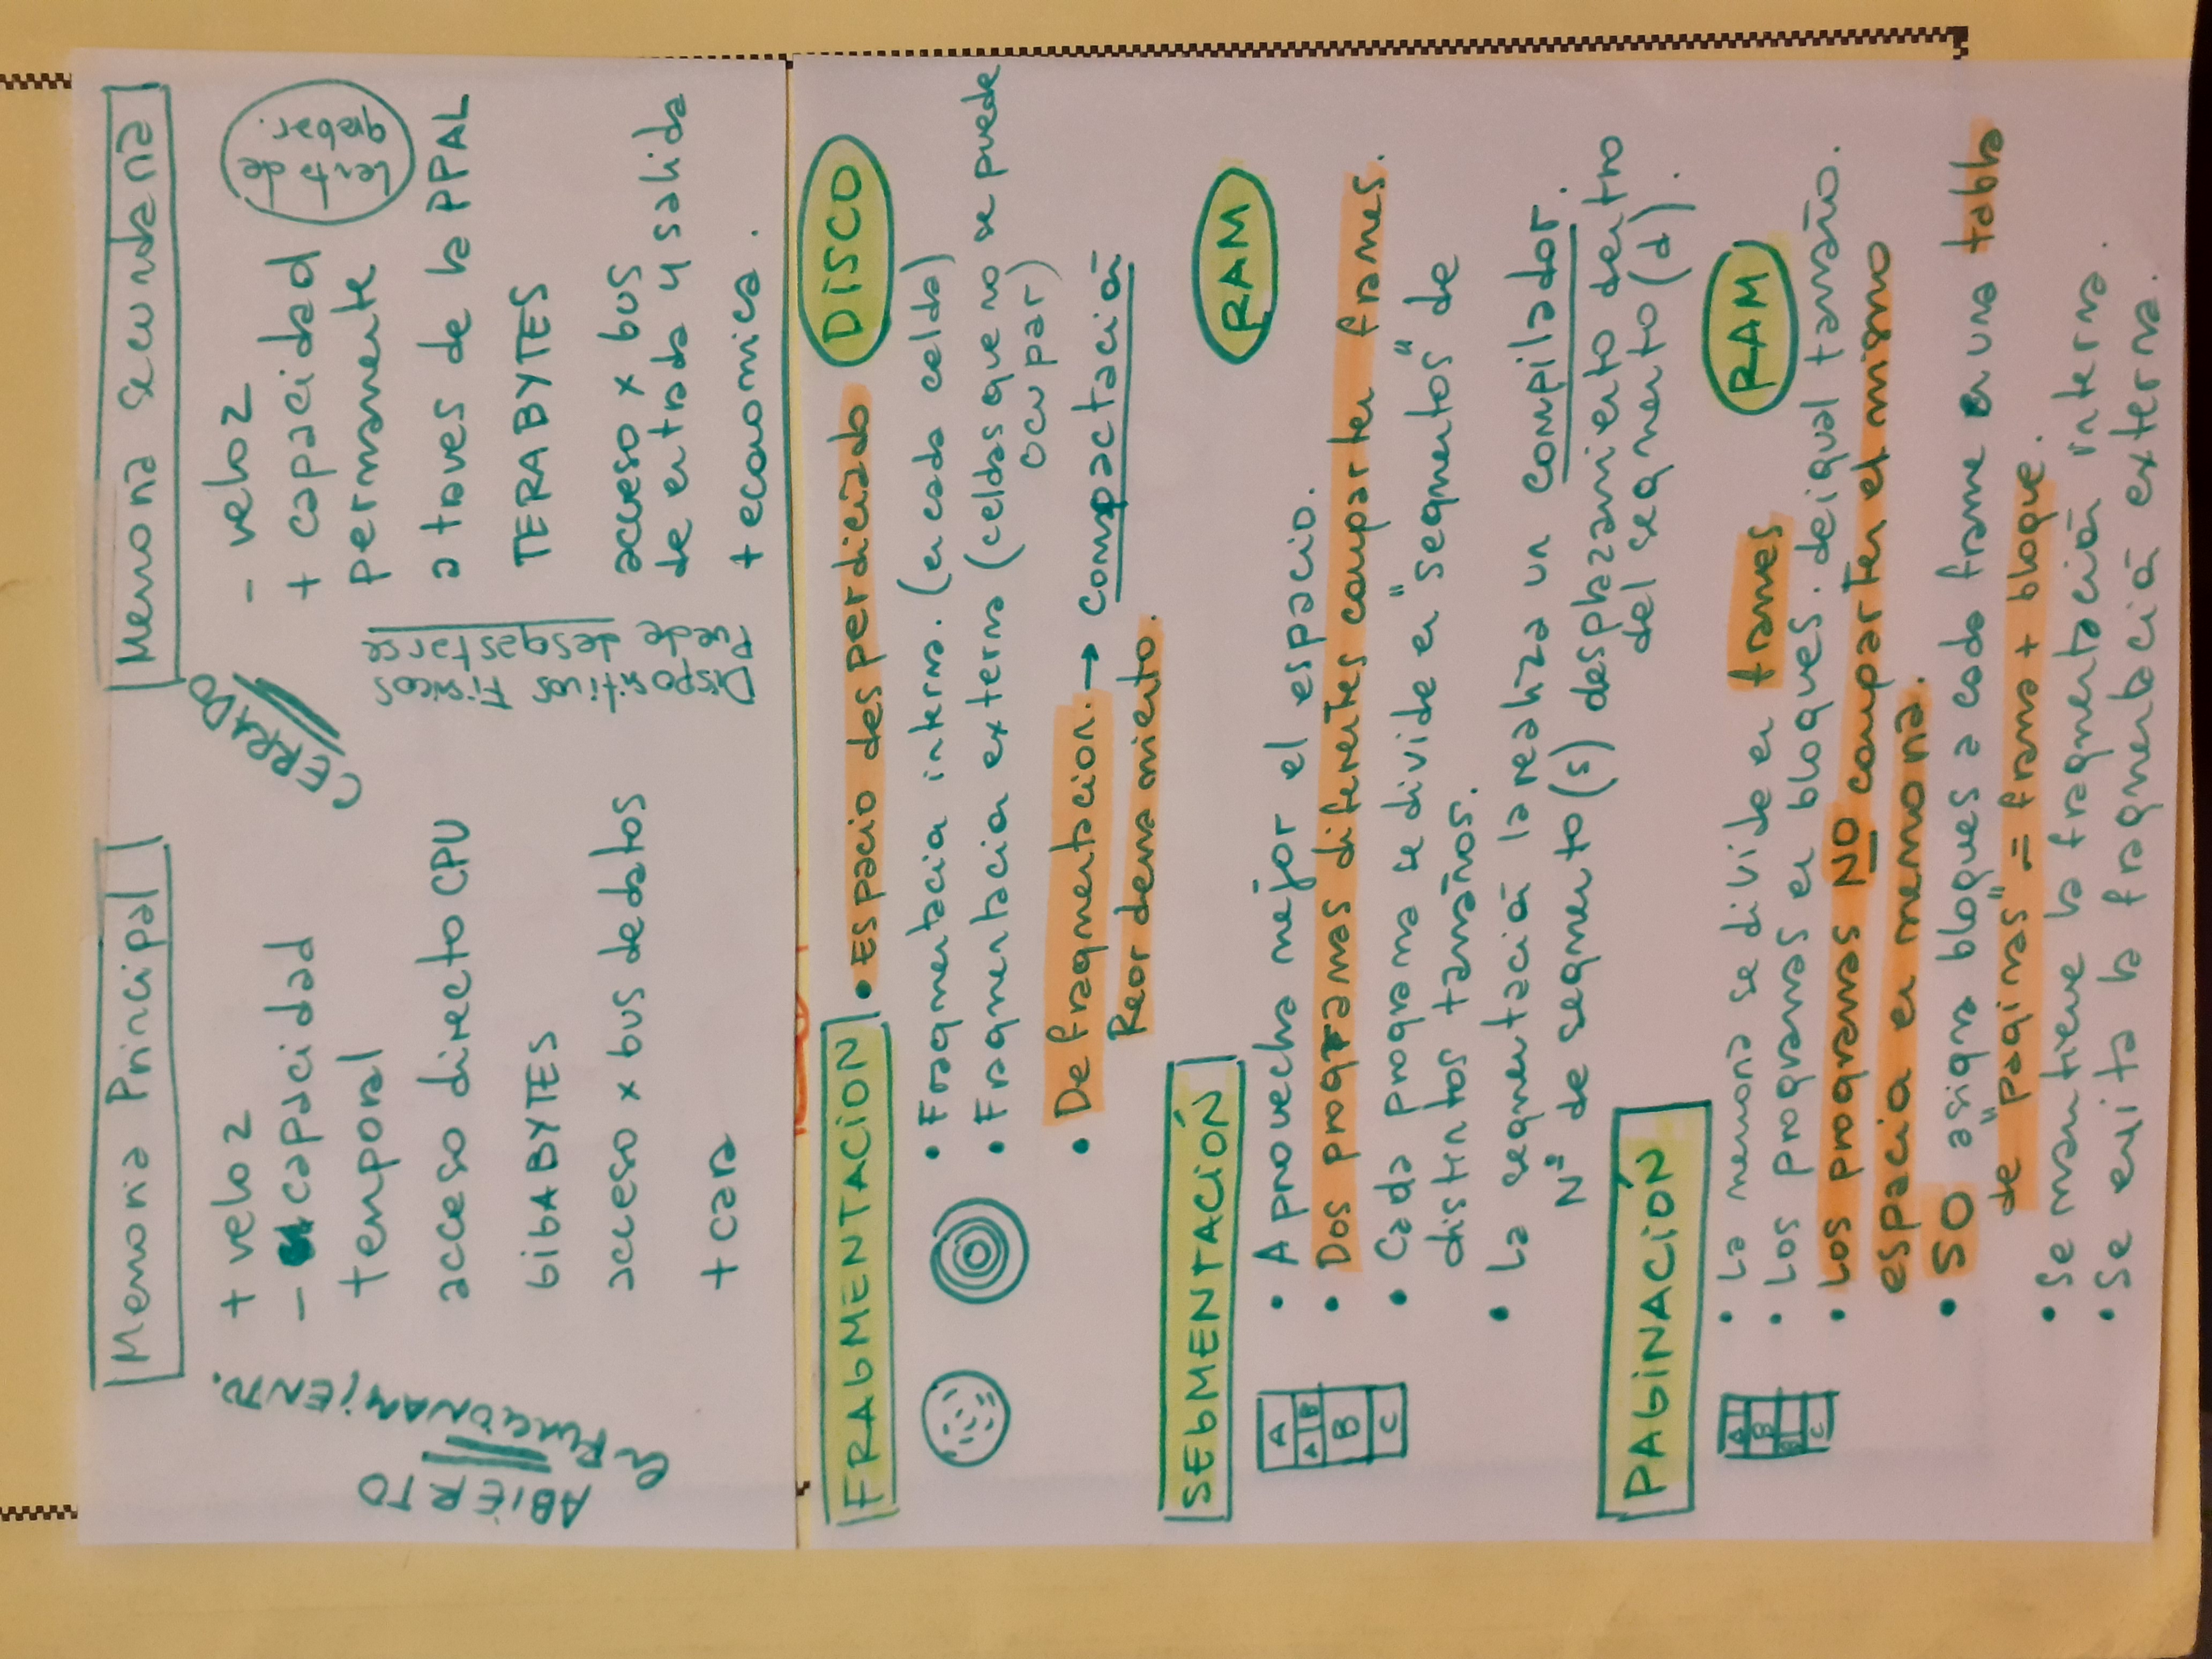 Memoria Principal
ABIERTO
en FUNCIONAMIENTO.
+ veloz
- capacidad
temporal
acceso directo CPU
GIGABYTES
acceso x bus de datos
+ cara
Memoria Secundaria
CERRADO
Dispositivos Fisicos
Puede desgastarse
- veloz
+ capacidad
permanente
a traves de la PPAL
TERABYTES
acceso x bus
de entrada y salida
+ economica.
dejar
FRAGMENTACION • Espacio desperdiciado DISCO
• Fragmentación interna. (en cada celda)
• Fragmentación externa (celdas que no se puede
ocupar)
• Defragmentacion. → Compactación
Reordenamiento.
SEGMENTACIÓN
RAM
A
A B
B
C
• Aprovecha mejor el espacio.
• Dos programas diferentes comparten frames.
• Cada programa se divide en "segmentos" de
distintos tamaños.
• La segmentación la realiza un compilador.
Nº de segmento (s) desplazamiento dentro
del segmento (d).
PAGINACIÓN
RAM
A
B
B
C
• La memoria se divide en frames
• Los programas en bloques. de igual tamaño.
• Los programas NO comparten el mismo
espacio en memoria.
• SO asigna bloques a cada frame en una tabla
de "paginas" = frame + bloque.
• Se mantiene la fragmentación interna.
• Se evita la fragmentación externa.